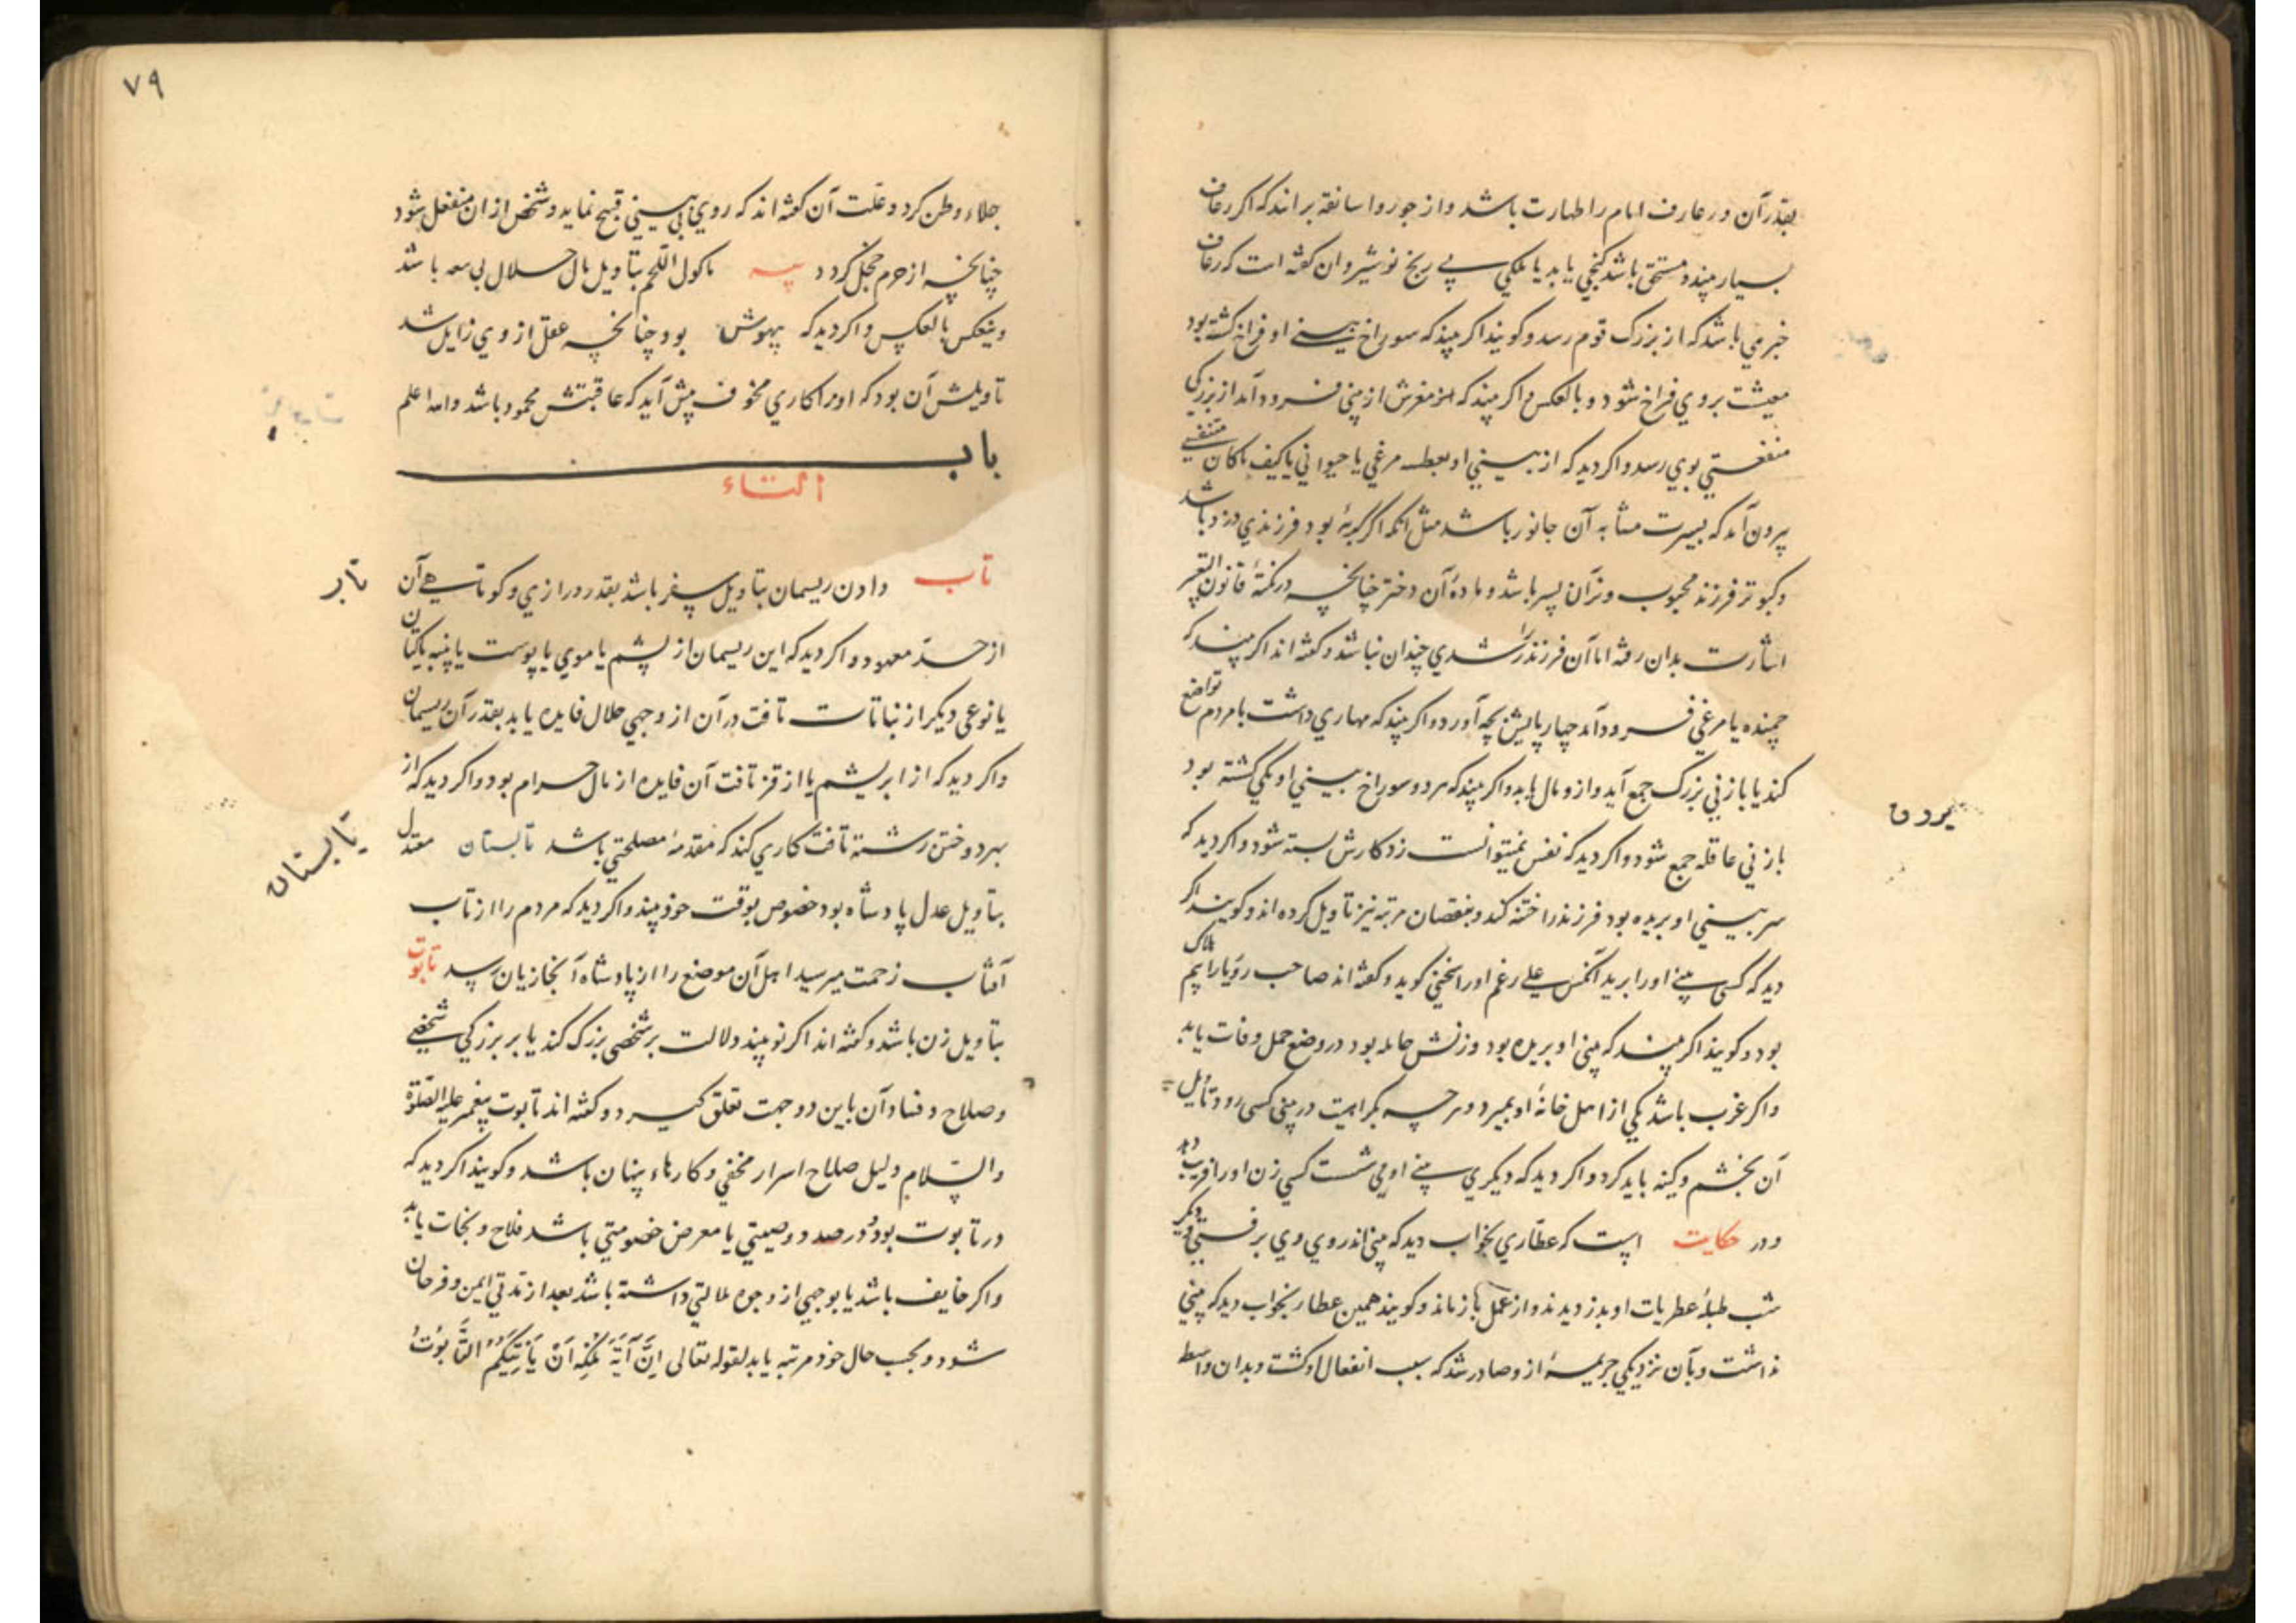 بقدر آن در عارف امام را طهارت باشد و از جور و اسانقه براند که اکر رعاف
بسیار بیند و مستحق باشد کنجی یابد یا ملکی بی رنج نوشیروان کفته است که رعاف
خبری باشد که از بزرک قوم رسد و کویند اکر بیند که سوراخ بینی او فراخ کشته بود
معیشت بر وی فراخ شود و بالعکس و اکر بیند که از مغزش از بینی فرود آمد از بزرکی
منفعتی بوی رسد و اکر دید که از بینی او بعطسه مرغی یا حیوانی یا کیف ماکان متنفسی
بیرون آمد که بسیرت مشابه آن جانور باشد مثل انکه اکر کربهٔ بود فرزندی دزد باشد
و کبوتر فرزند محبوب و نر آن پسر باشد و مادهٔ آن دختر چنانچه در نکتهٔ قانون التعبیر
اشارت بدان رفته اما آن فرزند را رشدی چندان نباشد و کفته اند اکر بیند که
جمنده یا مرغی فرود آمد چهارپایش بچه آورد و اکر بیند که مهاری داشت با مردم تواضع
کند یا با زنی بزرک جمع آید و ازو مال یابد و اکر بیند که هر دو سوراخ بینی او یکی کشته بود
با زنی عاقله جمع شود و اکر دید که نفس نمیتوانست زد کارش بسته شود و اکر دید که
سر بینی او بریده بود فرزند را ختنه کند و بنقصان مرتبه نیز تاویل کرده اند و کویند اکر
دید که کسی بینی او را برید آنکس علی رغم او را سخنی کوید و کفته اند صاحب رویا را بیم هلاک
بود و کویند اکر بیند که بینی او بریده بود و زنش حامله بود در وضع حمل وفات یابد
و اکر عزب باشد یکی از اهل خانهٔ او بمیرد و هر چه بکراهیت در بینی کسی رود تأویل
آن بخشم و کینه باید کرد و اکر دید که دیکری بینی او می شست کسی زن او را فریب دهد
و در حکایت است که عطاری بخواب دید که بینی اندر وی بر فستی دیکر
شب طبلهٔ عطریات او بدزدیدند و از عمل باز ماند و کویند همین عطار بخواب دید که بینی
نداشت و بآن نزدیکی جریمهٔ ازو صادر شد که سبب انفعال او کشت و بدان واسطه
۷۹
جلاء وطن کرد و علت آن کفته اند که روی بی بینی قبیح نماید و شخص از ان منفعل شود
چنانچه از جرم خجل کردد پیه ماکول اللحم بتاویل مال حلال بی باشد
و ینعکس بالعکس و اکر دید که بیهوش بود چنانچه عقل از وی زایل شد
تاویلش آن بود که او را کاری مخوف پیش آید که عاقبتش محمود باشد والله اعلم
باب
التاء
تاب دادن ریسمان بتاویل سفر باشد بقدر درازی و کوتاهی آن
از حد معهود و اکر دید که این ریسمان از پشم یا موی یا پوست یا پنبه یا کتان
یا نوعی دیکر از نباتات تافت در آن از وجهی حلال فایده یابد بقدر آن ریسمان
و اکر دید که از ابریشم یا از قز تافت آن فایده از مال حرام بود و اکر دید که از
بهر دوختن رشته تافت کاری کند که مقدمهٔ مصلحتی باشد تابستان معتدل
بتاویل عدل پادشاه بود خصوص بوقت خود بیند و اکر دید که مردم را از تاب
آفتاب زحمت میرسید اهل آن موضع را از پادشاه آنجا زیان رسد تابوت
بتاویل زن باشد و کفته اند اکر نو بیند دلالت بر شخصی بزرک کند یا بر بزرکی شخصی
و صلاح و فساد آن باین دو جهت تعلق کیرد و کفته اند تابوت پیغمبر علیه الصلوة
والسلام دلیل صلاح اسرار مخفی و کارهاء پنهان باشد و کویند اکر دید که
در تابوت بود و در صدد وصیتی یا معرض خصومتی باشد فلاح و نجات یابد
و اکر خایف باشد یا بوجهی از وجوه ملالتی داشته باشد بعد از مدتی ایمن و فرحان
شود و بحسب حال خود مرتبه یابد لقوله تعالی اِنَّ آیَةَ مُلْکِهِ اَنْ یَأْتِیَکُمُ التَّابُوتُ
تاب
تابستان